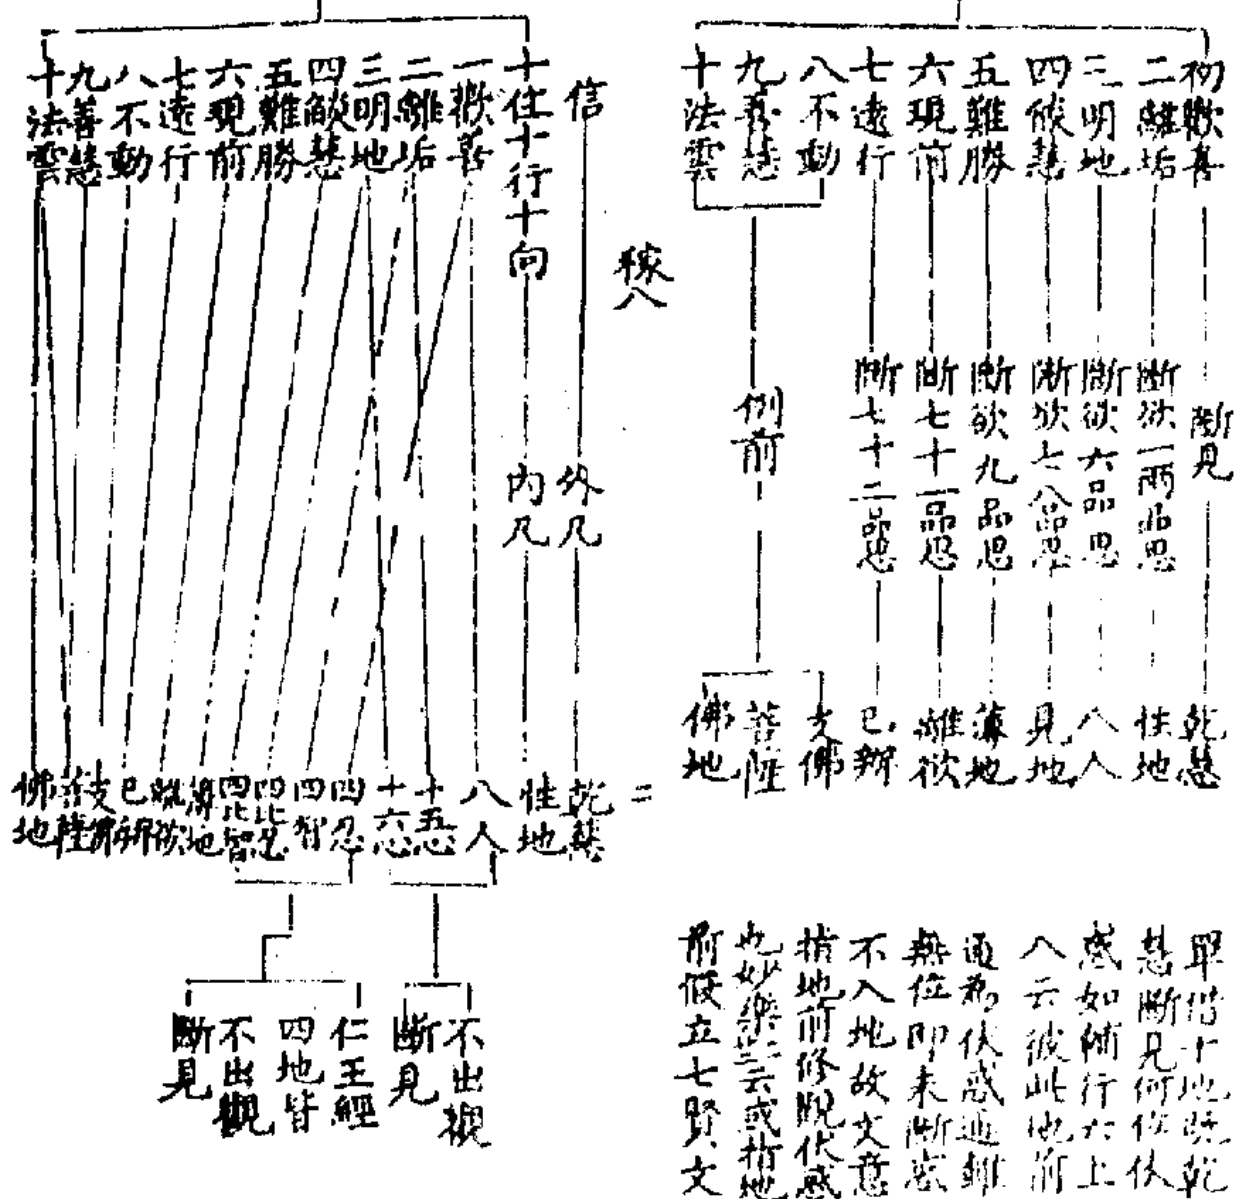 初歡喜
二離垢
三明地
四𦦨慧
五難勝
六現前
七遠行
八不動
九善慧
十法雲
斷見
斷欲一兩品思
斷欲六品思
斷欲七八品思
斷欲九品思
斷七十一品思
斷七十二品思
例前
乾慧
性地
八人
見地
薄地
離欲
已辦
支佛
菩薩
佛地
單借十地既乾
慧斷見何位伏
惑如輔行六上
八云彼此地前
通為伏惑通雖
無位即未斷惑
不入地故文意
指地前修觀伏惑
也妙樂云或指地
前假立七賢文
稼八
信
十住十行十向
一歡喜
二離垢
三明地
四燄慧
五難勝
六現前
七遠行
八不動
九善慧
十法雲
外凡
內凡
二
乾慧
性地
八人
十五忍
十六忍
四忍
四智
四比忍
四比智
薄地
離欲
已辦
支佛
菩薩
佛地
不出觀
斷見
仁王經
四地皆
不出觀
斷見